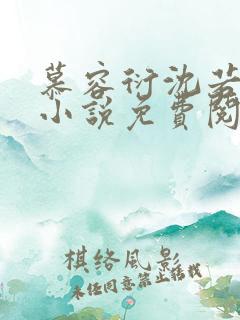 慕容衍沈若
小說免費閱
棋络風影
未经同意禁止转载